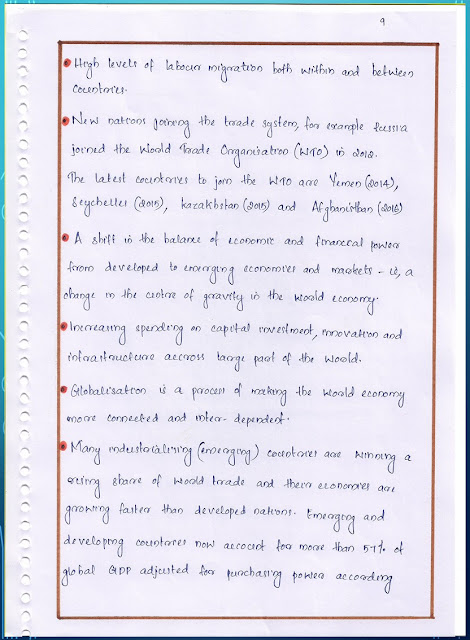 9
High levels of labour migration both within and between
countries.
New nations joining the trade system, for example Russia
joined the World Trade Organisation (WTO) in 2012.
The latest countries to join the WTO are Yemen (2014),
Seychelles (2015), Kazakhstan (2015) and Afghanisthan (2016)
A shift in the balance of economic and financial power
from developed to emerging economies and markets - is, a
change in the centre of gravity in the world economy.
Increasing spending on capital investment, innovation and
infrastructure accross large part of the world.
Globalisation is a process of making the world economy
more connected and inter-dependent.
Many industrialising (emerging) countries are winning a
rising share of world trade and their economies are
growing faster than developed nations. Emerging and
developing countries now account for more than 57% of
global GDP adjusted for purchasing power according